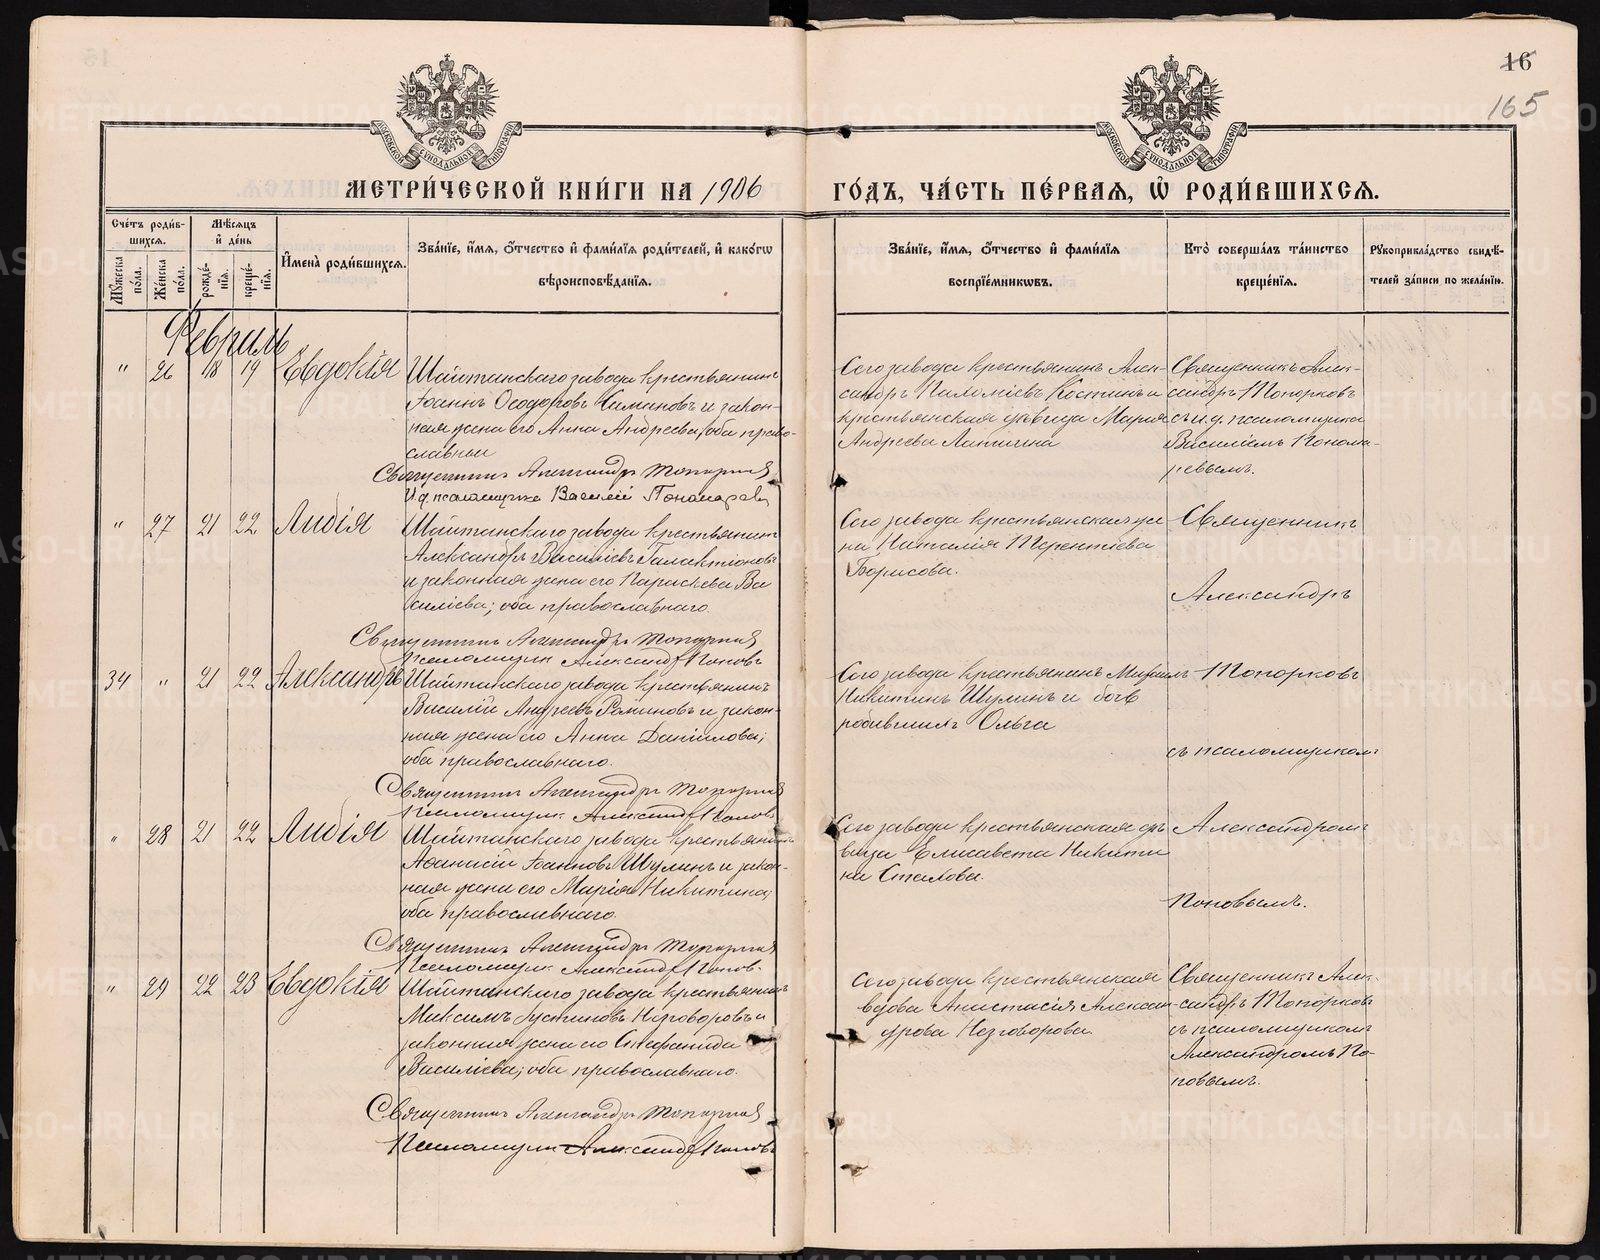 16
165
МОСКОВСКОЙ СѴНОДАЛЬНОЙ ТИПОГРАФІИ
МОСКОВСКОЙ СѴНОДАЛЬНОЙ ТИПОГРАФІИ
МЕТРИ́ЧЕСКОЙ КНИ́ГИ НА 1906 ГО́ДЪ, ЧА́СТЬ ПЕ́РВАЯ, Ѡ҆ РОДИ́ВШИХСЯ.
Сче́тъ роди́вшихся.
Мꙋ́жеска по́ла.
Же́нска по́ла.
Мѣ́сяцъ и҆ де́нь
рожде́нїя.
креще́нїя.
И҆мена̀ роди́вшихся.
Зва́нїе, и҆́мя, ѻ҆́тчество и҆ фами́лїя роди́телей, и҆ како́гѡ
вѣроисповѣ́данїя.
Зва́нїе, и҆́мя, ѻ҆́тчество и҆ фами́лїя
воспрїе́мникѡвъ.
Кто̀ соверша́лъ та́инство
креще́нїя.
Рꙋкоприкла́дство свидѣ́-
телей за́писи по жела́нїю.
Февраль
" 26 18 19 Евдокія
Шайтанскаго завода крестьянинъ
Іоаннъ Ѳеодоровъ и закон-
ная жена его Анна Андреева; оба право-
славные
Священникъ Александръ Топорковъ
И.д. псаломщика Василій Пономаревъ
Сего завода крестьянинъ Алек-
сандръ Костинъ и
крестьянская дѣвица Марія
Андреева
Священникъ Алек-
сандръ Топорковъ
съ и.д. псаломщика
Василіемъ Понома-
ревымъ.
" 27 21 22 Лидія
Шайтанскаго завода крестьянинъ
Александръ Василіевъ Галактіоновъ
и законная жена его Параскева Ва
силіева; оба православнаго.
Священникъ Александръ Топорковъ
Псаломщикъ Александръ Поповъ
Сего завода крестьянская же
на Наталія Терентіева
Борисова.
Священникъ
Александръ
34 " 21 22 Александръ
Шайтанскаго завода крестьянинъ
Василій Андреевъ и закон-
ная жена его Анна Даніилова;
оба православнаго.
Священникъ Александръ Топорковъ
Псаломщикъ Александръ Поповъ
Сего завода крестьянинъ Михаилъ
Никитинъ Шулинъ и
Ольга
Топорковъ
съ псаломщикомъ
" 28 21 22 Лидія
Шайтанскаго завода крестьянинъ
Аѳанасій Іоанновъ Шулинъ и закон-
ная жена его Марія Никитина;
оба православнаго.
Священникъ Александръ Топорковъ
Псаломщикъ Александръ Поповъ.
Сего завода крестьянская дѣ
вица Елисавета Никити
на
Александромъ
Поповымъ.
" 29 22 23 Евдокія
Шайтанскаго завода крестьянинъ
Максимъ Іустиновъ Незговоровъ и
законная жена его Стефанида
Василіева; оба православнаго.
Священникъ Александръ Топорковъ
Псаломщикъ Александръ Поповъ
Сего завода крестьянская
вдова Анастасія Алексан
дрова Незговорова
Священникъ Алек-
сандръ Топорковъ
съ псаломщикомъ
Александромъ По-
повымъ.